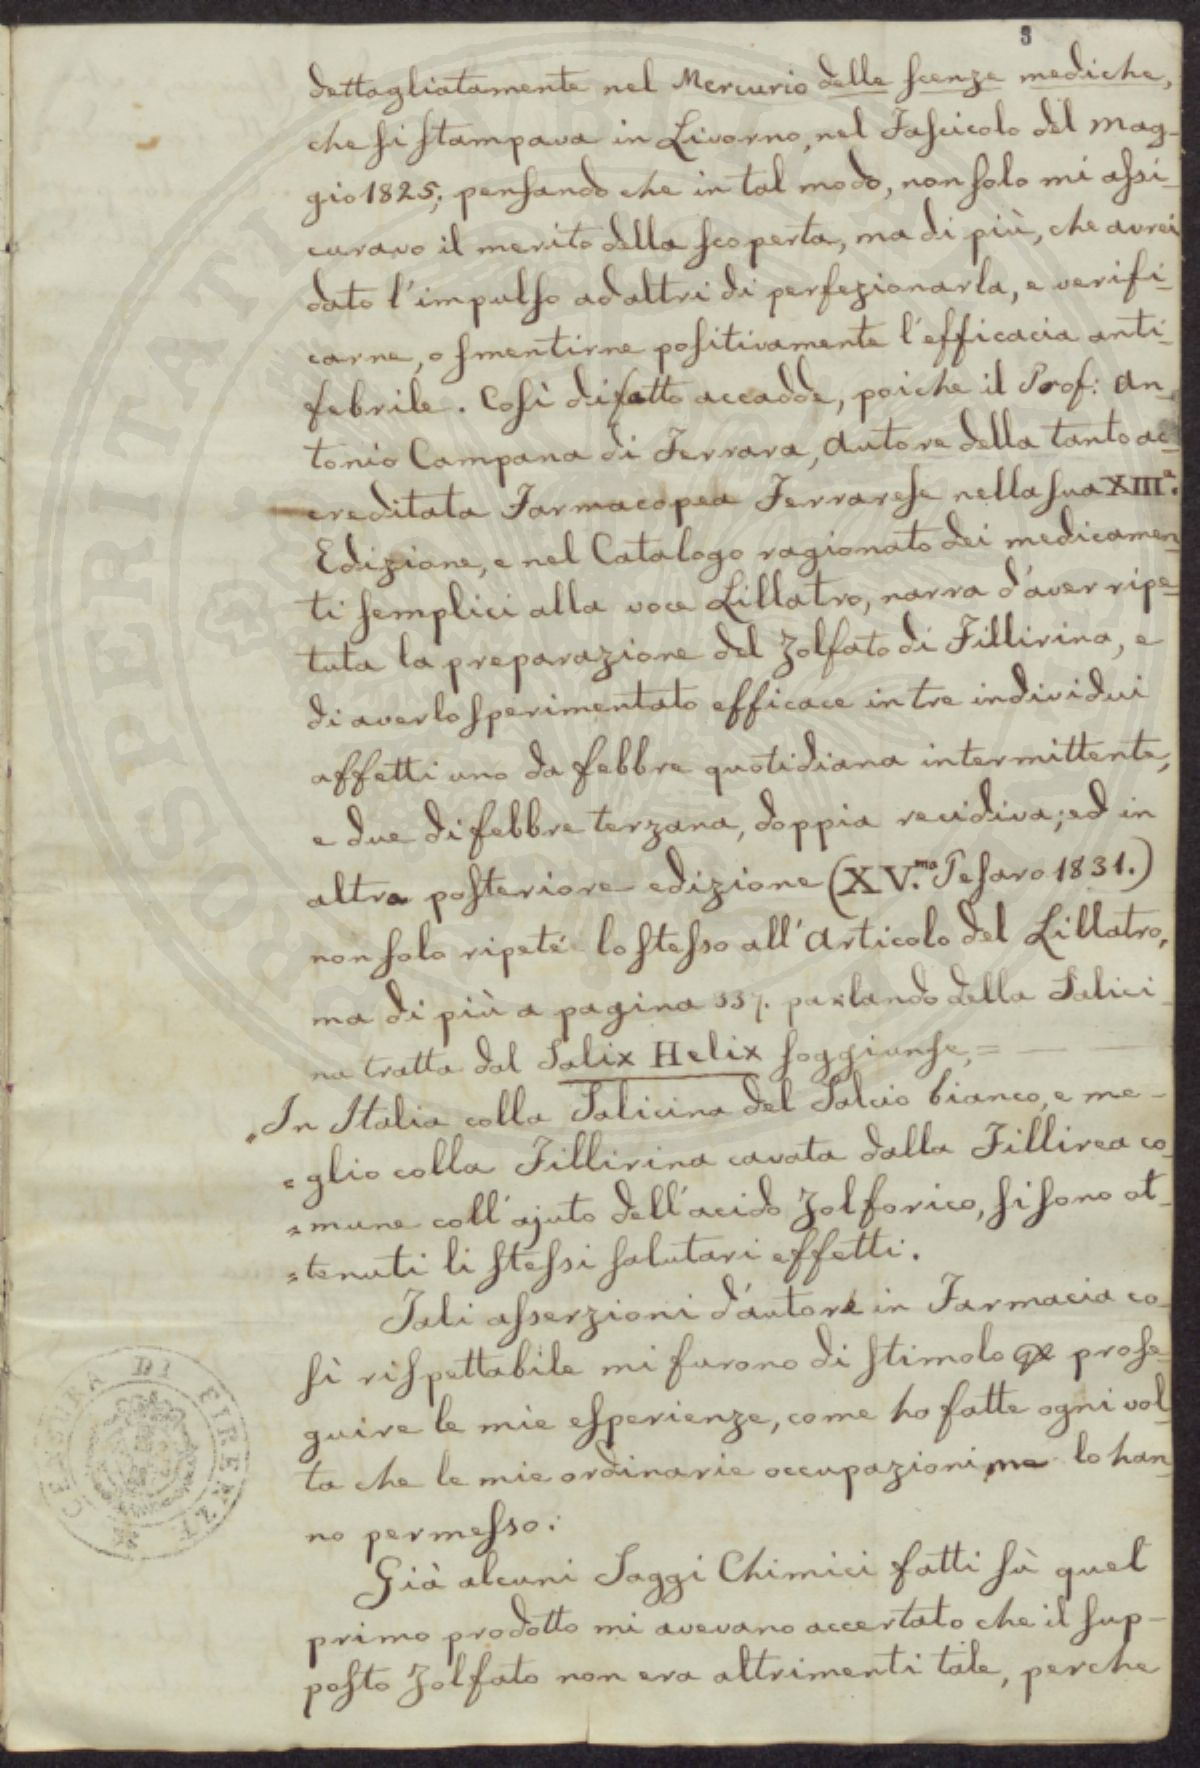 3
dettagliatamente nel Mercurio delle scenze mediche,
che si stampava in Livorno, nel Fascicolo del Mag-
gio 1825; pensando che in tal modo, non solo mi assi-
curavo il merito della scoperta, ma di più, che avrei
dato l'impulso ad altri di perfezionarla, e verifi-
carne, o smentirne positivamente l'efficacia anti-
febrile. Così difatto accadde, poiche il Prof: An-
tonio Campana di Ferrara, Autore della tanto ac-
creditata Farmacopea Ferrarese nella sua XIIIª.
Edizione, e nel Catalogo ragionato dei medicamen-
ti semplici alla voce Lillatro, narra d'aver ripe-
tuta la preparazione del Zolfato di Fillirina, e
di averlo sperimentato efficace in tre individui
affetti uno da febbre quotidiana intermittente,
e due di febbre terzana, doppia recidiva; ed in
altra posteriore edizione (XV.ma Pesaro 1831.)
non solo ripeté lo stesso all'Articolo del Lillatro,
ma di più a pagina 337. parlando della Salici-
na tratta dal Salix Helix soggiunse, =
"In Italia colla Salicina del Salcio bianco, e me-
=glio colla Fillirina cavata dalla Fillirea co-
=mune coll'ajuto dell'acido Zolforico, si sono ot-
=tenuti li stessi salutari effetti.
Tali asserzioni d'autore in Farmacia co-
sì rispettabile mi furono di stimolo per prose-
guire le mie esperienze, come ho fatte ogni vol-
ta che le mie ordinarie occupazioni me lo han-
no permesso.
Già alcuni Saggi Chimici fatti sù quel
primo prodotto mi avevano accertato che il sup-
posto Zolfato non era altrimenti tale, perche
CENSURA DI FIRENZE
PROSPERITATI